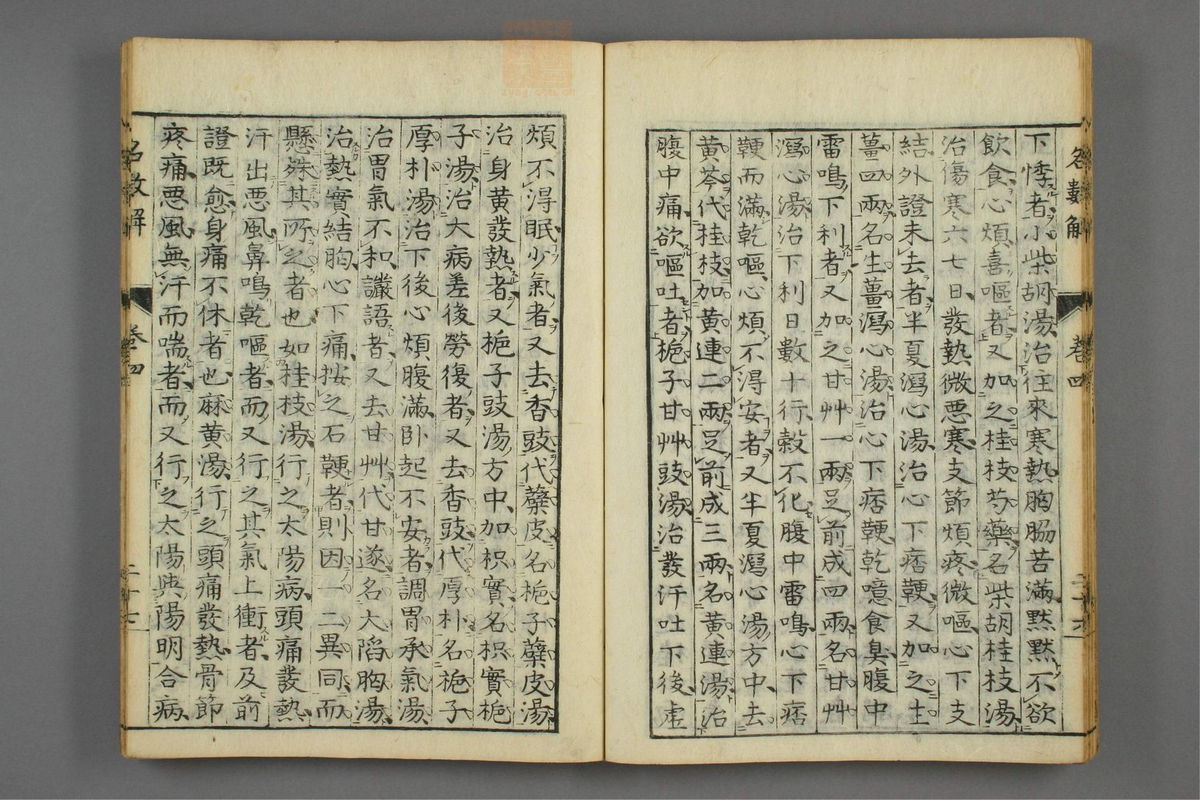 名數解 卷四
下悸者小柴胡湯治往來寒熱胸脇苦滿黙黙不欲
飲食心煩喜嘔者又加之桂枝芍藥名柴胡桂枝湯
治傷寒六七日發熱微惡寒支節煩疼微嘔心下支
結外證未去者半夏瀉心湯治心下痞鞕又加之生
薑四兩名生薑瀉心湯治心下痞鞕乾噫食臭腹中
雷鳴下利者又加之甘艸一兩足前成四兩名甘艸
瀉心湯治下利日數十行穀不化腹中雷鳴心下痞
鞕而滿乾嘔心煩不得安者又半夏瀉心湯方中去
黃芩代桂枝加黃連二兩足前成三兩名黃連湯治
腹中痛欲嘔吐者梔子甘艸豉湯治發汗吐下後虛
煩不得眠少氣者又去香豉代蘗皮名梔子蘗皮湯
治身黃發熱者又梔子豉湯方中加枳實名枳實梔
子湯治大病差後勞復者又去香豉代厚朴名梔子
厚朴湯治下後心煩腹滿卧起不安者調胃承氣湯
治胃氣不和讝語者又去甘艸代甘遂名大陷胸湯
治熱實結胸心下痛按之石鞕者則因一二異同而
懸殊其所之者也如桂枝湯行之太陽病頭痛發熱
汗出惡風鼻鳴乾嘔者而又行之其氣上衝者及前
證既愈身痛不休者也麻黃湯行之頭痛發熱骨節
疼痛惡風無汗而喘者而又行之太陽與陽明合病
名數解 卷四 二十七